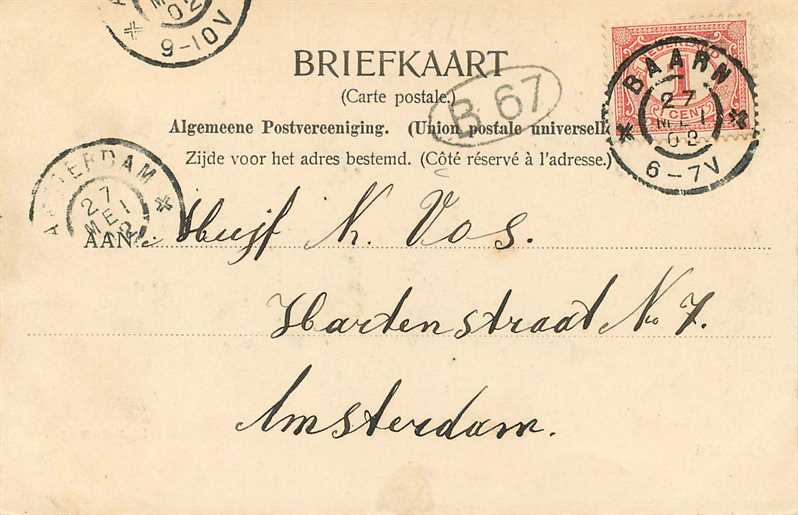 02
9-10V
BRIEFKAART
(Carte postale.)
B 67
NEDERLAND
1
CENT
BAARN
27
MEI
02
6-7V
Algemeene Postvereeniging. (Union postale universell
Zijde voor het adres bestemd. (Côté réservé à l'adresse.)
AMSTERDAM
27
MEI
02
AAN
K. Vos.
Hartenstraat No 7.
Amsterdam.